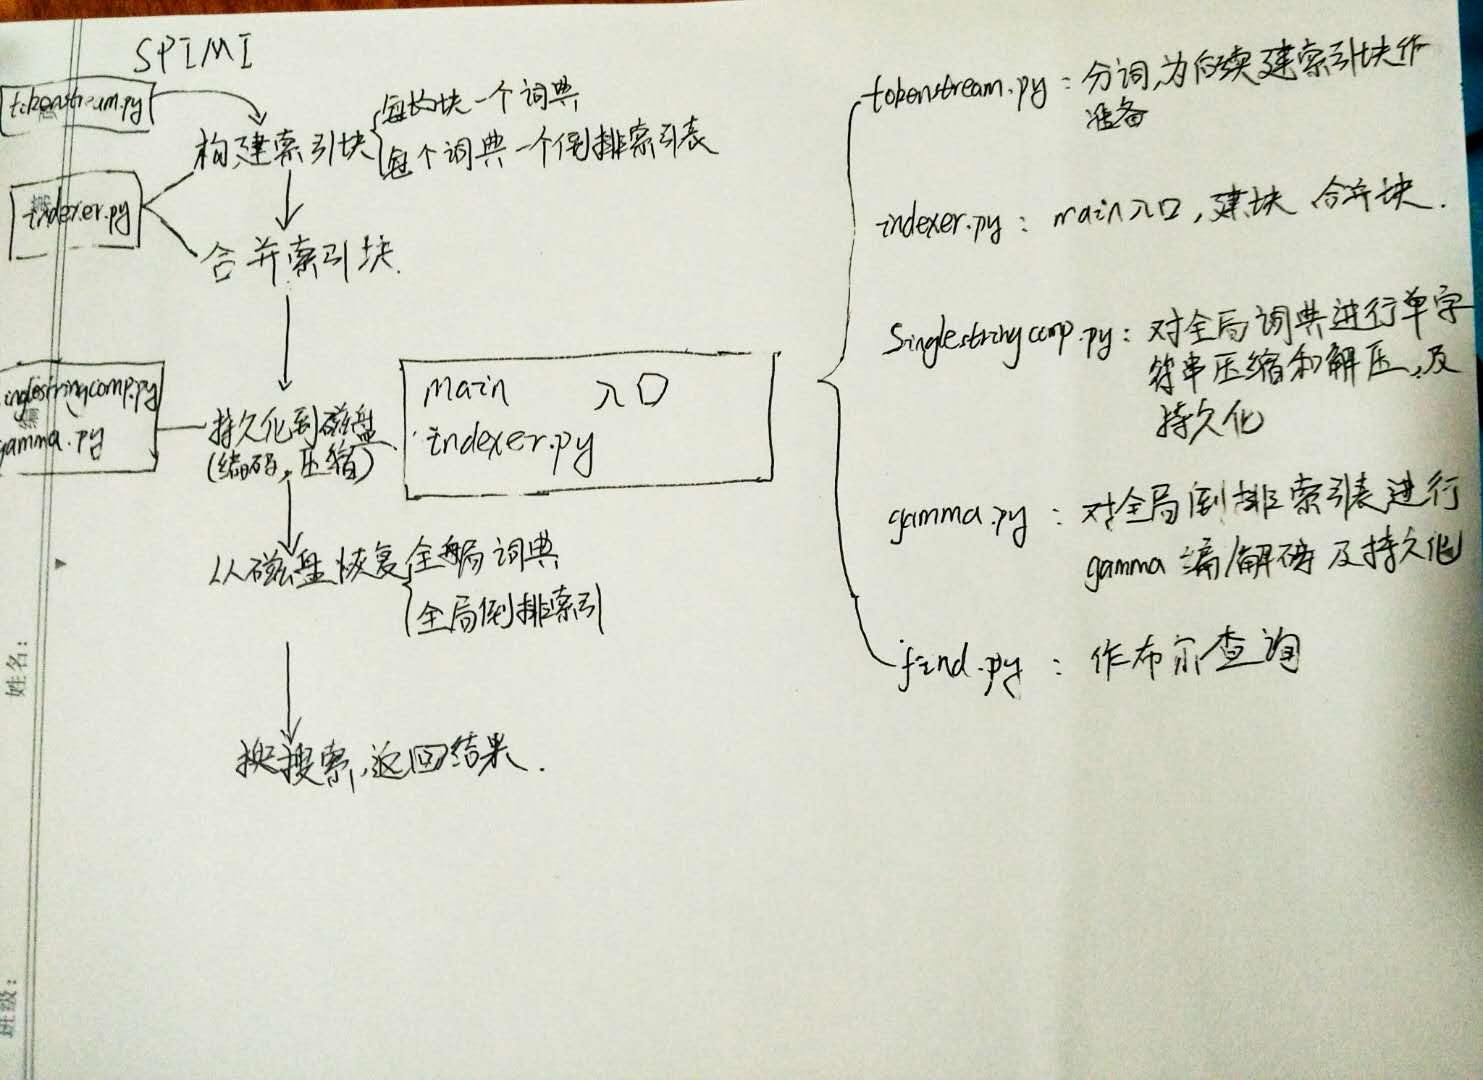 SPIMI
tokenstream.py
构建索引块
每个块一个词典
每个词典一个倒排索引表
indexer.py
合并索引块.
inglestringcomp.py
gamma.py
持久化到磁盘
(编码,压缩)
main 入口
indexer.py
从磁盘恢复
全局词典
全局倒排索引
搜索,返回结果.
tokenstream.py:分词,为后续建索引块作
准备
indexer.py: main入口,建块 合并块.
Singlestringcomp.py:对全局词典进行单字
符串压缩和解压,及
持久化
gamma.py:对全局倒排索引表进行
gamma 编/解码及持久化
find.py:作布尔查询
姓名:
班级: